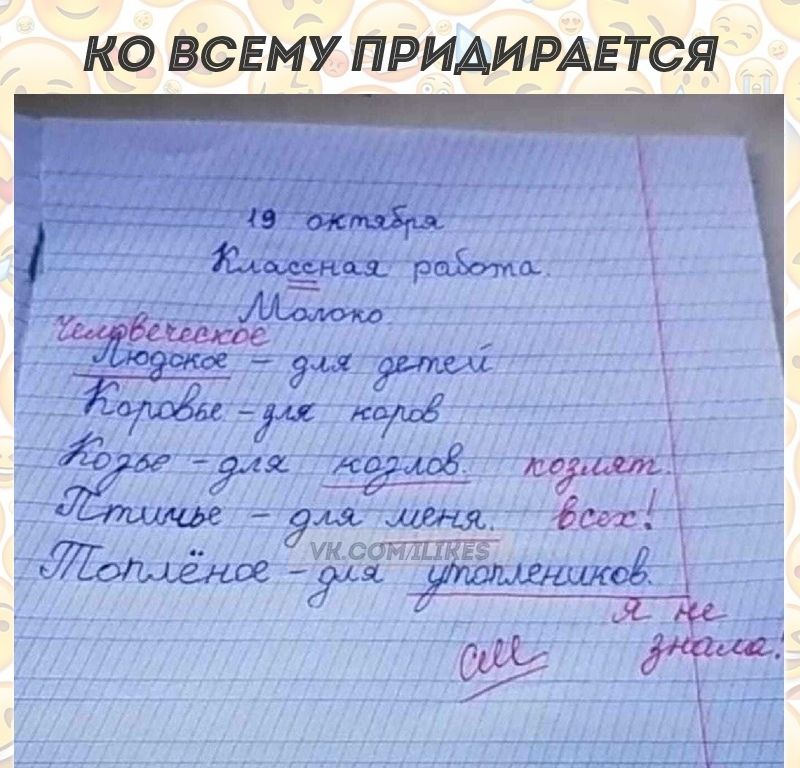 КО ВСЕМУ ПРИДИРАЕТСЯ
19 октября
Классная работа.
Молоко
человеческое
Людское – для детей
Коровье – для коров
Козье – для козлов. козлят.
Птичье – для меня. всех!
VK.COM/ILIKES
Топлёное – для утоплеников.
я не
знала!
см